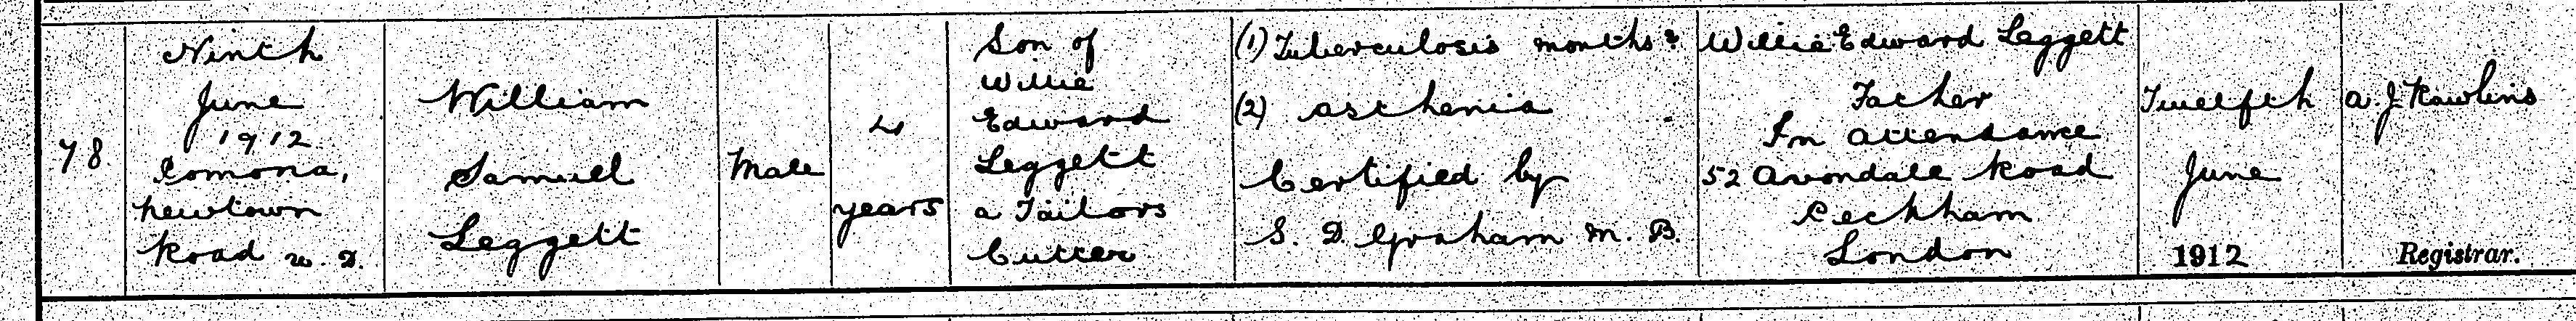 78
Ninth
June
1912
Pomona,
Newtown
Road W. D.
William
Samuel
Leggett
Male
4
years
Son of
Willie
Edward
Leggett
a Tailors
Cutter
(1) Tuberculosis months?
(2) Asthenia
Certified by
S. D. Graham M. B.
Willie Edward Leggett
Father
In attendance
52 Avondale Road
Peckham
London
Twelfth
June
1912
A. J. Rawlins
Registrar.